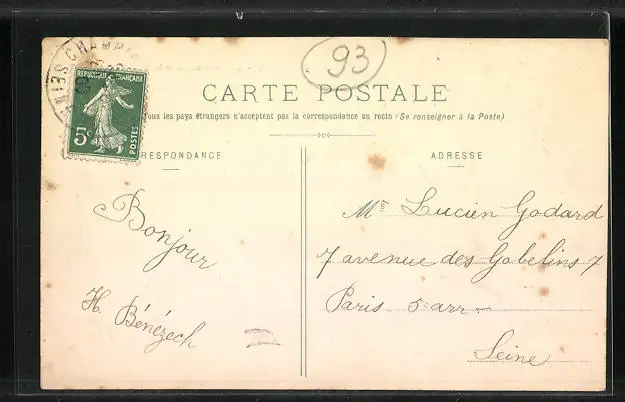 93
CARTE POSTALE
Tous les pays étrangers n'acceptent pas la correspondance au recto (Se renseigner à la Poste)
RESPONDANCE
ADRESSE
REPUBLIQUE FRANÇAISE
5c
POSTES
Bonjour
H. Bénézech
Mr Lucien Godard
7 avenue des Gobelins 7
Paris 5 arr.
Seine